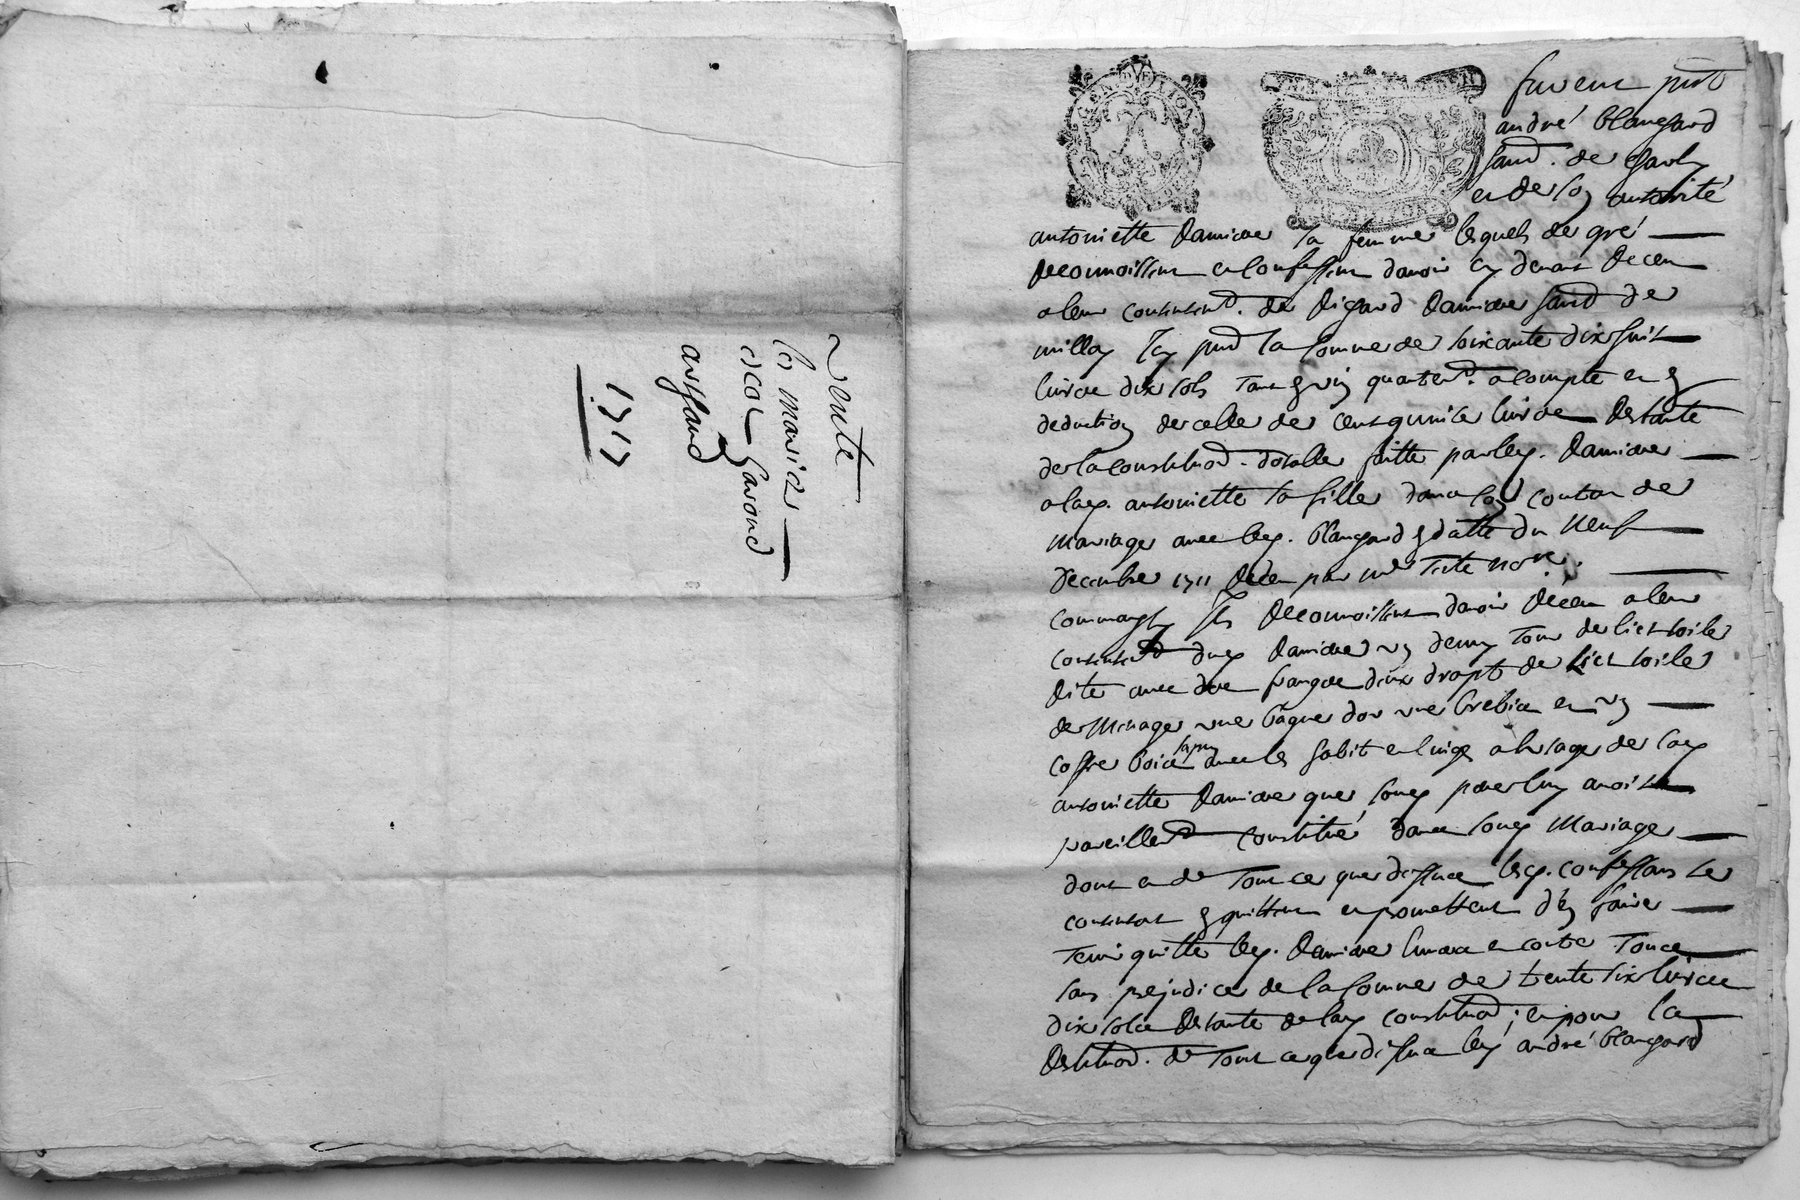 vente
les mariés
escot Garond
arthaud
1717
furent pnts
andré blangard
de
et de son autorité
antoniette Damiane sa femme lesquels de gré
Reconnoissent et confessent davoir cy devant Receu
a leur contentemt. de Rigard Damiane de
millon icy pnt la somme de soixante dix huit
livres dix sols tant quartemt. a compte et en
deduction de celle de cent quinze livres Restante
de la constituon. dotalle faitte par ley. Damiane
a lay. antoniette sa fille dans son contrat de
Mariage avec ley. blangard en datte du Neuf
Decembre 1711 Receu par me Teste nore.
Comm ils Reconnoissent davoir Receu a leur
contentemt duy Damiane un demy tour de lict toile
Rite avec franges deux drapts de lict toile
de Menage une bague dor une brebis et un
coffre bois sapin avec les habits et linges a lusage de lay
antoniette Damiane que souy pere luy avoit
pareillemt constitué dans souy Mariage
dont et de tout ce que dessus lesy. confessans se
contentent et quittent et promettent d'en faire
tenir quitte ley. Damiane envers et contre tous
sans prejudice de la somme de trente six livres
dix sols Restante de lay constituon; et pour la
Restituon. de tout ce que dessus ley andré blangard